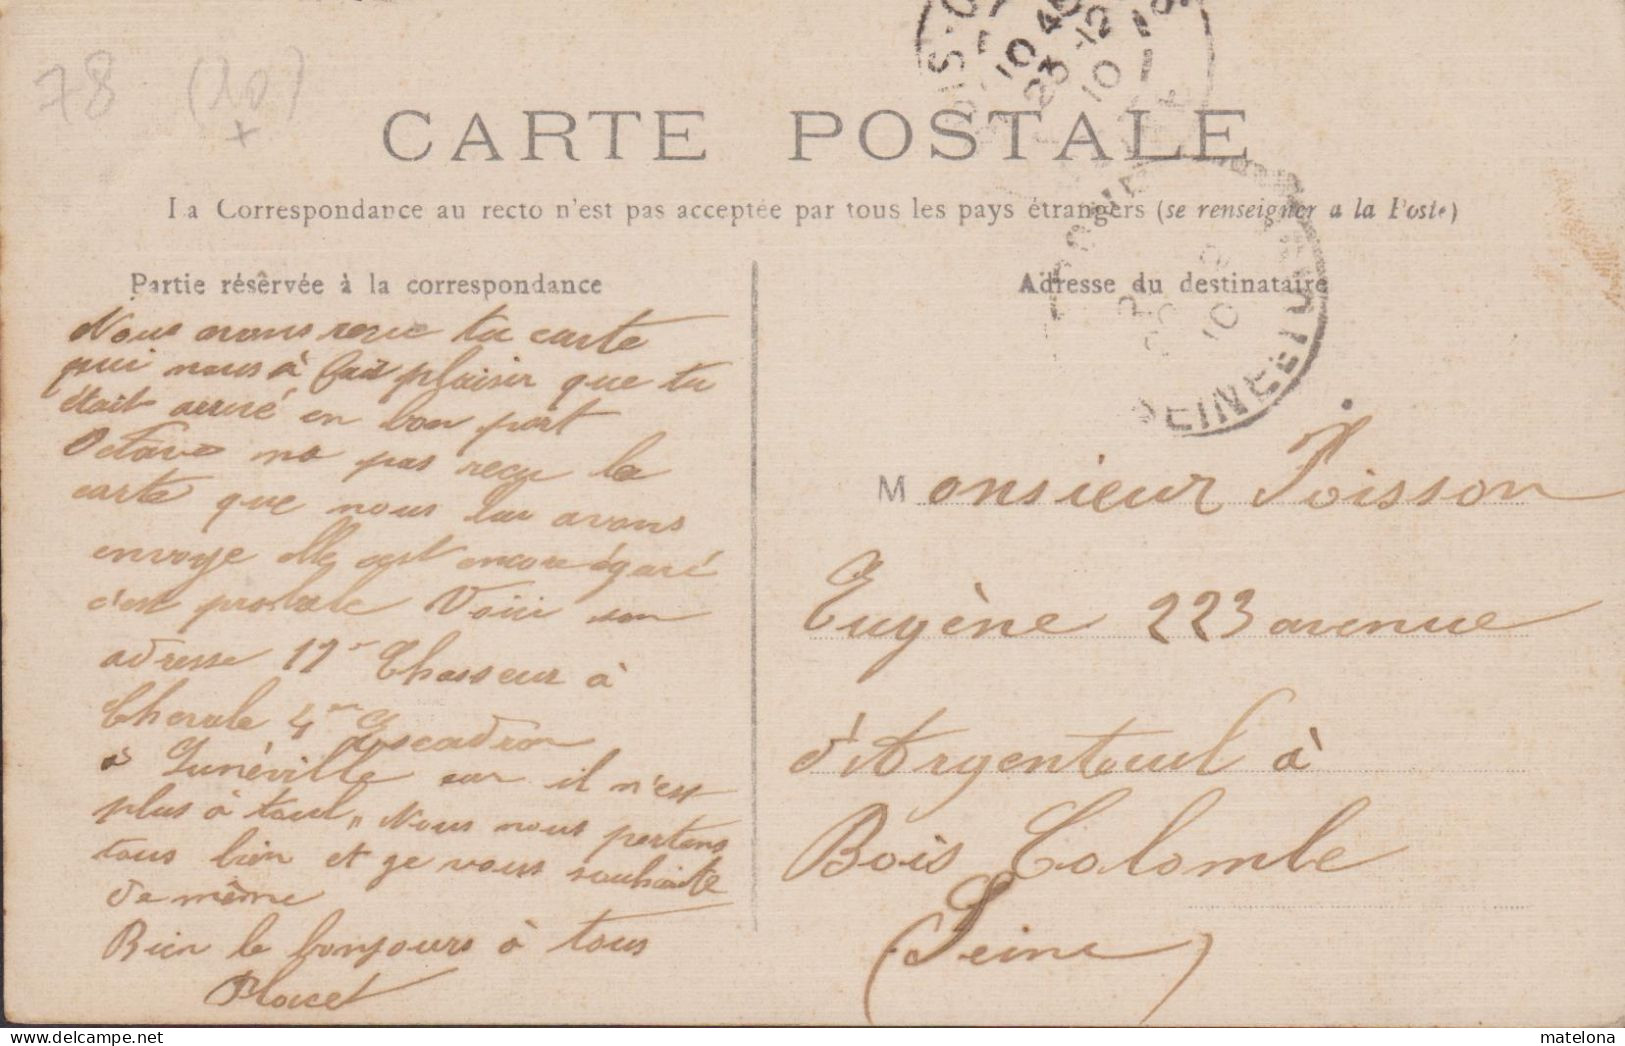 78 (10)
+
CARTE POSTALE
La Correspondance au recto n'est pas acceptée par tous les pays étrangers (se renseigner a la Poste)
Partie réservée à la correspondance
Nous avons resu ta carte
qui nous à fait plaisir que tu
était arrivé en bon port
Octave na pas reçu la
carte que nous lui avons
envoye elle est encore égaré
c'est probable Voici son
adresse 17e Chasseur à
Chevale 4em Escadron
à Lunéville car il n'est
plus à toul, Nous nous portons
tous bien et je vous souhaite
de même
Bien le bonjours à tous
Adresse du destinataire
Monsieur Poisson
Eugène 223 avenue
d'Argenteuil à
Bois Colombe
(Seine)
10 40
23 -12
10
SEINE
10
matelona